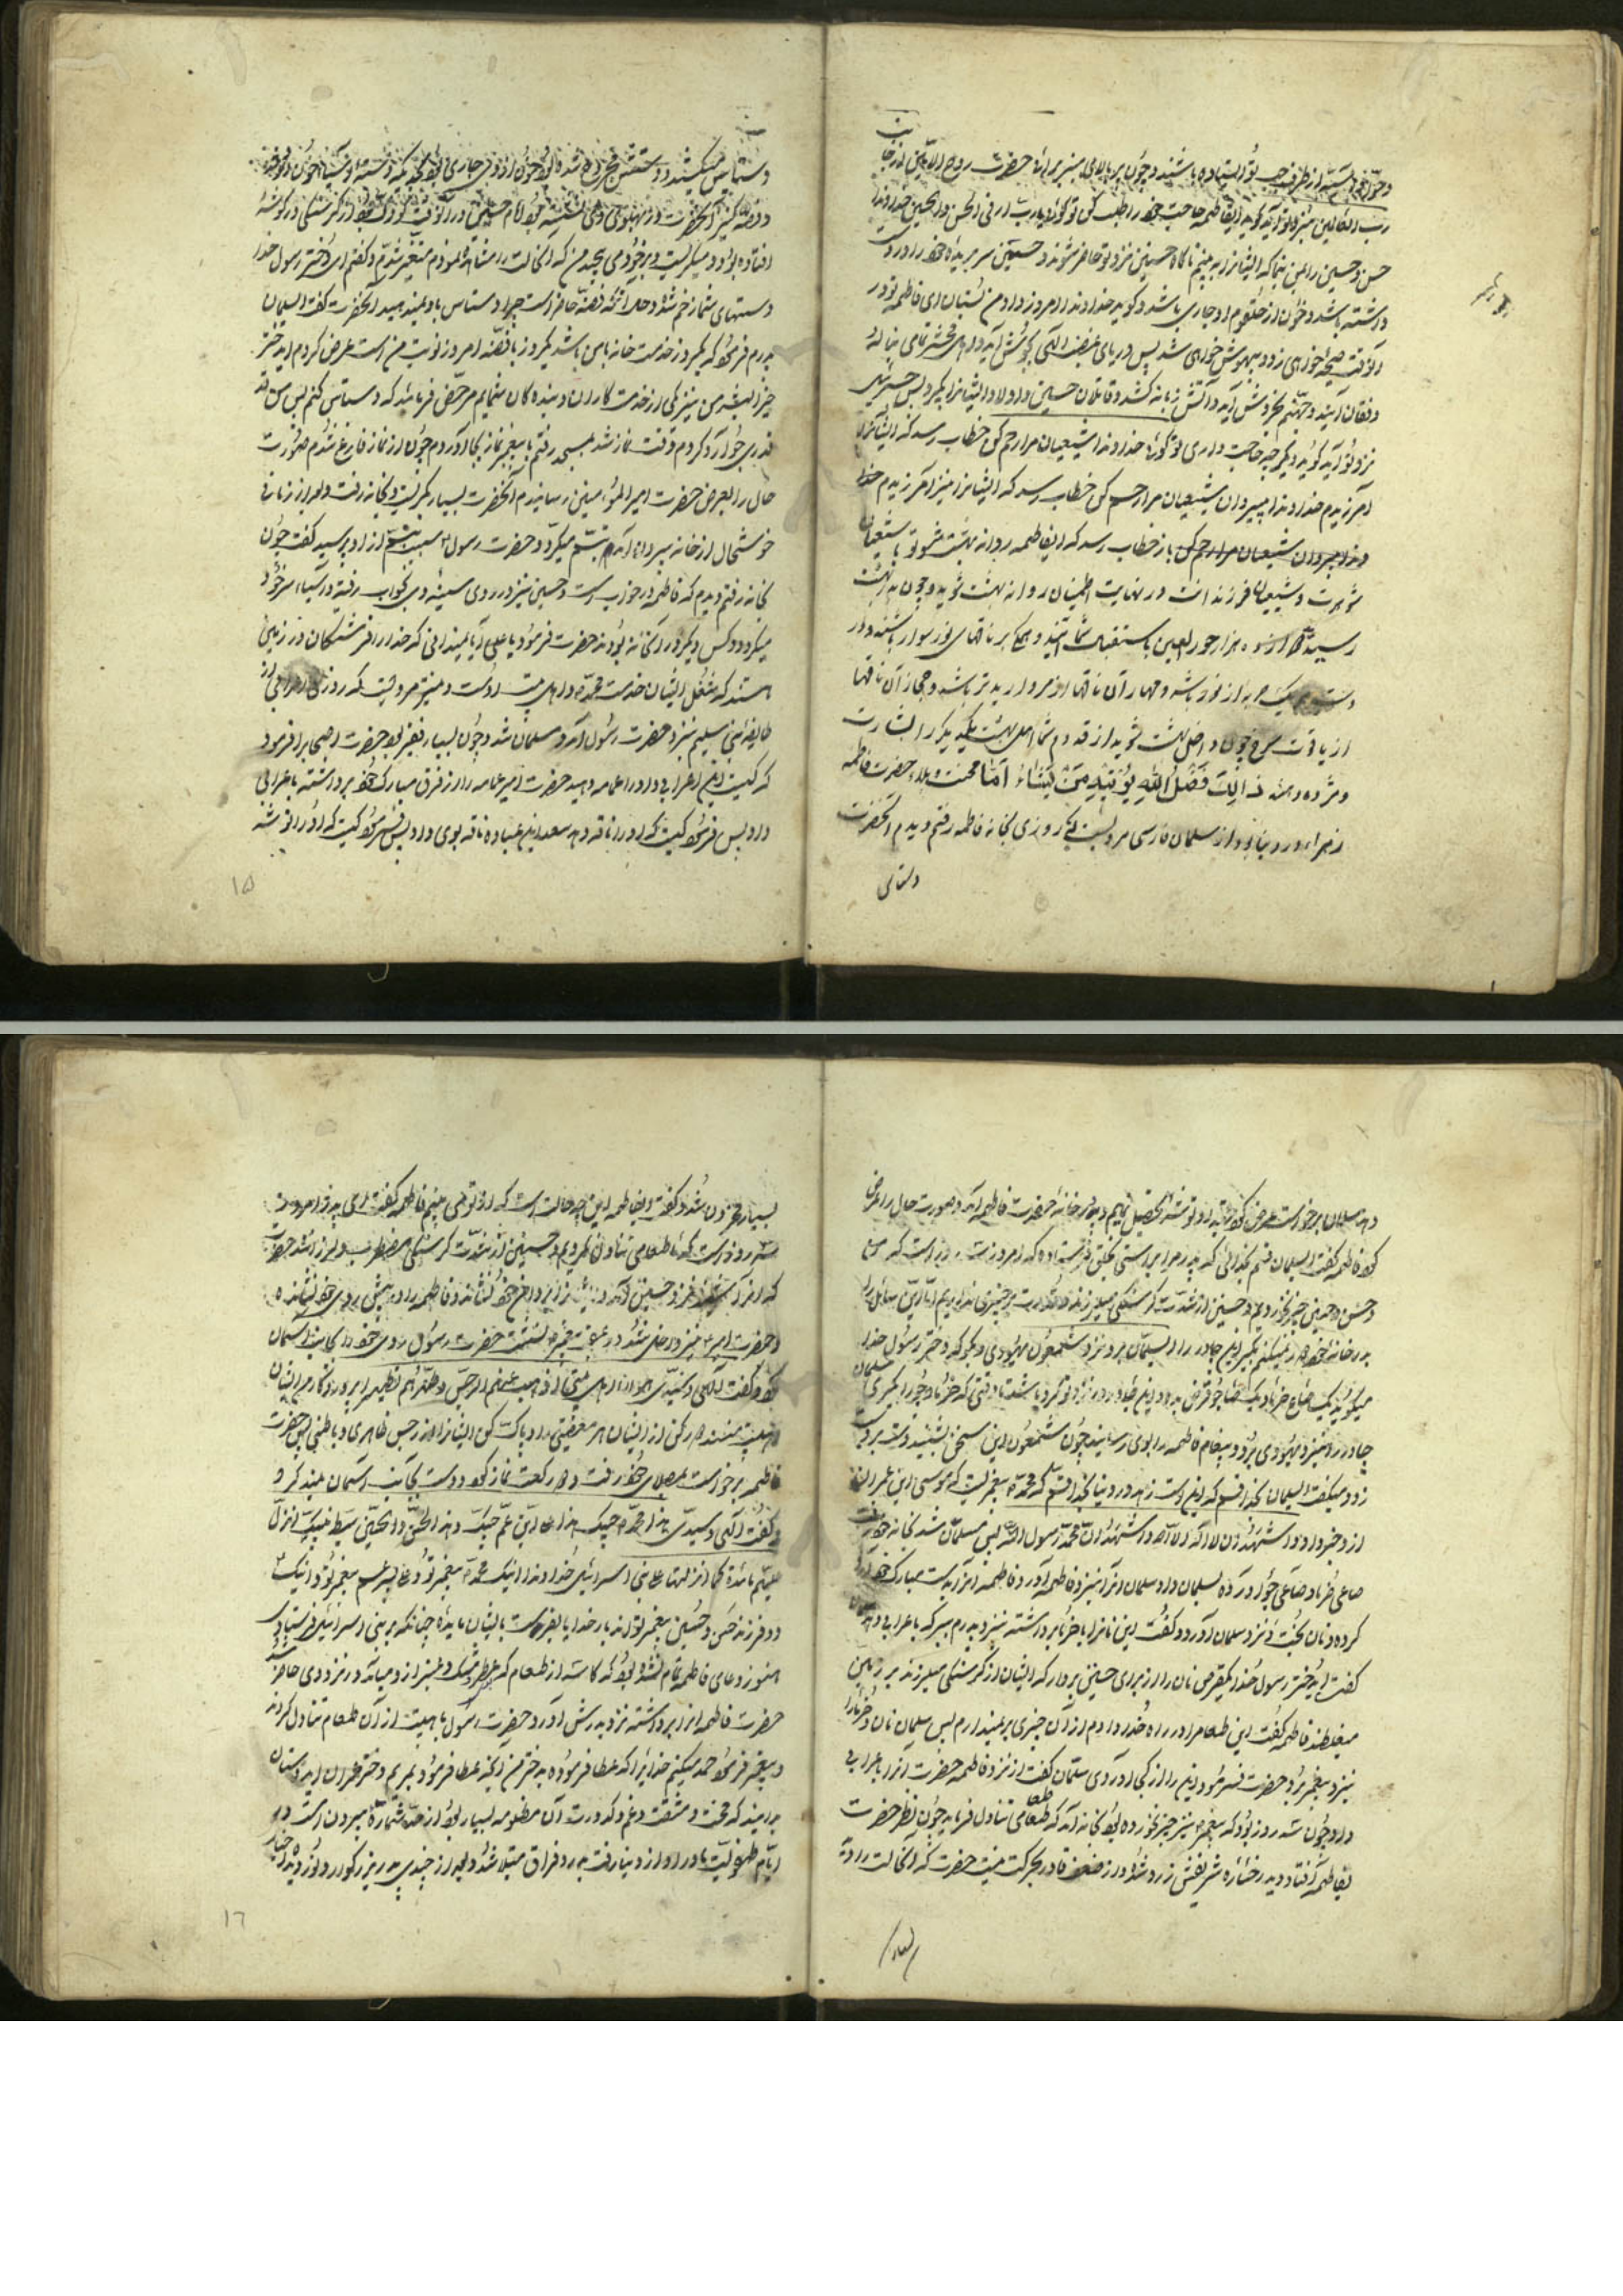 رب العالمین بنزد تو آید گوید ایفاطمه حاجت خود را طلب کن تو گوئی یا رب ارنی الحسن و الحسین خداوندا
حسن و حسین را بمن بنما که ایشانرا به بینم ناگاه حسنین نزد تو حاضر شوند و حسین سر بریده خود را در دست
داشته باشد و خون از حلقوم او جاری باشد و گوید خداوندا امروز داد من بستان ای فاطمه تو در
آنوقت صیحه خواهی زد و بیهوش خواهی شد پس دریای غضب الهی بجوش آید و اهل محشر تمامی بناله
و فغان آیند و جهنم بخروش آید و آتش زبانه کشد و قاتلان حسین و اولاد ایشانرا بگیرد پس جبرئیل
نزد تو آید گوید دیگر چه حاجت داری تو گوئی خداوندا شیعیان مرا رحم کن خطاب رسد که ایشانرا
آمرزیدم خداوندا پیروان شیعیان مرا رحم کن خطاب رسد که ایشانرا نیز آمرزیدم
باز خطاب رسد که ایفاطمه روانه بهشت شو تو با شیعیان
شوهرت و شیعیان فرزندانت در نهایت اطمینان روانه بهشت شوید و چون به بهشت
رسید هزار حور العین باستقبال شما آیند و همگی بر ناقهای نور سوار باشند و در
دست هر یک حربه از نور باشد و مهار آن ناقها از مروارید تر باشد و جهاز آن ناقها
از یاقوت سرخ چون داخل بهشت شوید از قدوم شما اهل بهشت یکدیگر را بشارت
و مژده دهند ذالِكَ فَضْلُ اللهِ يُؤْتِيهِ مَنْ يَشَاءُ اما محنت و بلاء حضرت فاطمه
زهراء در دنیا بود از سلمان فارسی مرویست که روزی بخانه فاطمه رفتم دیدم آنحضرت
دستاس
دستاس میکشید و دستش مجروح شده و خون از وی جاری بود
و فضه کنیز آنحضرت در پهلوی وی نشسته بود امام حسین در آنوقت کودک بود از گرسنگی در گوشه
افتاده بود و میگریست و بر خود می پیچید من که آنحالت را مشاهده نمودم متغیر شدم و گفتم ای دختر رسول خدا
دستهای شما زخم شده و حال آنکه فضه حاضر است چرا دستاس باو نمیدهید آنحضرت گفت ای سلمان
پدرم فرموده که یکروز خدمت خانه با من باشد یکروز با فضه امروز نوبت من است عرض کردم ای دختر
خیر البشر من نیز یکی از خدمت کاران و بنده کان شمایم مرخص فرمائید که دستاس کنم پس من
قدری جو آرد کردم وقت نماز شد بمسجد رفتم با پیغمبر نماز بجا آوردم چون از نماز فارغ شدم صورت
حال را بعرض حضرت امیر المؤمنین رسانیدم آنحضرت بسیار بگریست و بخانه رفت و بعد از زمانی
خوشحال از خانه بیرون آمد تبسم میکرد و حضرت رسول سبب تبسم از او پرسید گفت چون
بخانه رفتم دیدم که فاطمه در خواب است و حسین نیز در روی سینه وی بخواب رفته و آسیا سر خود
میگردد و کس دیگر در آنخانه نبود حضرت فرمود یا علی آیا نمیدانی که خدا را فرشتگان در زمین
هستند که شغل ایشان خدمت محمد و اهل بیت اوست و نیز مرویست که روزی اعرابی از
طایفه بنی سلیم نزد حضرت رسول آمد و مسلمان شد و چون بسیار فقیر بود حضرت باصحاب فرمود
که کیست این اعرابی را عمامه دهد حضرت امیر عمامه را از فرق مبارک خود برداشته باعرابی
داد پس فرمود کیست که او را ناقه دهد سعد ابن عباده ناقه بوی داد پس فرمود کیست که او را توشه
۱۵
دهد سلمان برخاست عرض کرد
کرد فاطمه گفت ای سلمان قسم بخدائی که پدر مرا براستی بخلق فرستاده که امروز سه روز است که من
و حسن و حسین چیزی نخوردیم و حسنین از شدت گرسنگی میلرزند
بدر خانه خود رد نمیکنم بگیر این چادر را ای سلمان ببر نزد شمعون یهودی و بگو که دختر رسول خدا
میگوید یک صاع خرما و یک صاع جو قرض بده و این چادر در نزد تو گرو باشد تا وقتی که خرما و جو را بگیری سلمان
چادر را نزد یهودی برد و پیغام فاطمه را بوی رسانید چون شمعون این سخن بشنید
زد و میگفت ای سلمان بخدا قسم که این است زهد در دنیا بخدا قسم که محمد پیغمبریست که موسی ابن عمران
از او خبر داده اشهد ان لا اله الا الله و اشهد ان محمد رسول الله پس مسلمان شد
صاعی خرما و صاعی جو آورد به سلمان داد سلمان آنرا بنزد فاطمه آورد فاطمه آنرا بدست مبارک خود آرد
کرده و نان پخت و نزد سلمان آورد و گفت این نانرا با خرما برداشته نزد پدرم ببر که باعرابی دهد سلمان
گفت ای دختر رسول خدا یکقرص نان را از برای حسنین بردار که ایشان از گرسنگی میلرزند بر زمین
میغلطند فاطمه گفت این طعام را در راه خدا دادم از آن چیزی بر نمیدارم پس سلمان نان و خرما را
نزد پیغمبر برد حضرت فرمود این را از کجا آوردی سلمان گفت از نزد فاطمه حضرت آنرا باعرابی
داد و چون سه روز بود که پیغمبر نیز چیزی نخورده بود بخانه آمد که طعامی تناول فرماید چون نظر حضرت
بفاطمه افتاد دید رخساره شریفش زرد شده و از ضعف قادر بحرکت نیست حضرت که آنحالت را دید
بسیار
بسیار محزون شد و گفت ایفاطمه این چه حالت است که از تو می بینم فاطمه گفت ای پدر امروز
سه روز است که ما طعامی تناول نکردیم و حسنین از شدت گرسنگی مضطرب و لرزانند
و حضرت امیر نیز داخل شد و در عقب پیغمبر نشست حضرت رسول روی خود را بجانب آسمان
کرد و گفت الهی و سیدی هؤلاء اهل بیتی فاذهب عنهم الرجس و طهرهم تطهیرا پروردگارا ایشان
اهل بیت منند دور کن از ایشان هر معصیتی را و پاک کن ایشانرا از رجس ظاهری و باطنی پس حضرت
فاطمه برخاست بمصلای خود رفت و دو رکعت نماز کرد و دست بجانب آسمان بلند کرد و
گفت الهی و سیدی هذا محمد حبیبک هذا علی ابن عم حبیبک و هذا الحسن و الحسین سبط نبیک انزل
علیهم مائده کما انزلتها علی بنی اسرائیل خداوندا اینک محمد پیغمبر تو و علی پسر عم پیغمبر تو و اینک
دو فرزند حسن و حسین پیغمبر تواند بار خدایا بفرست بایشان مائده چنانکه بر بنی اسرائیل فرستادی
هنوز دعای فاطمه تمام نشده بود که کاسه از طعام که عطر مشک و عنبر از او میآمد در نزد وی حاضر شد
حضرت فاطمه آنرا برداشته نزد پدرش آورد حضرت رسول با اهلبیت از آن طعام تناول کردند
و پیغمبر فرمود حمد میکنم خدائیرا که عطا فرموده به دختر من آنچه عطا فرمود بمریم دختر عمران ای دوستان
بدانید که محنت و مشقت و غم و کدورت آن مظلومه بسیار بود از حد شماره بیرون است در
ایام طفولیت مادر او از دنیا رفت بدرد فراق مبتلا شد
۱۶